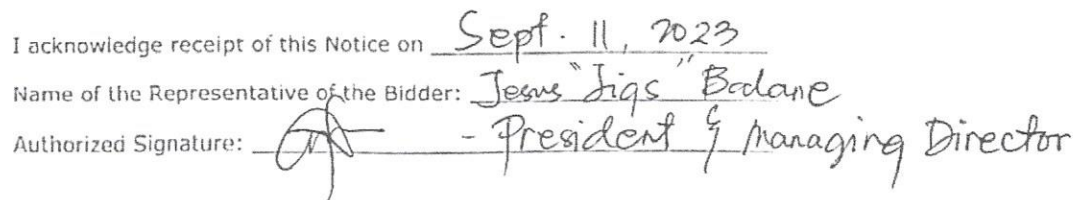 I acknowledge receipt of this Notice on Sept. 11, 2023
Name of the Representative of the Bidder: Jesus "Jigs" Badane
Authorized Signature: - President & Managing Director